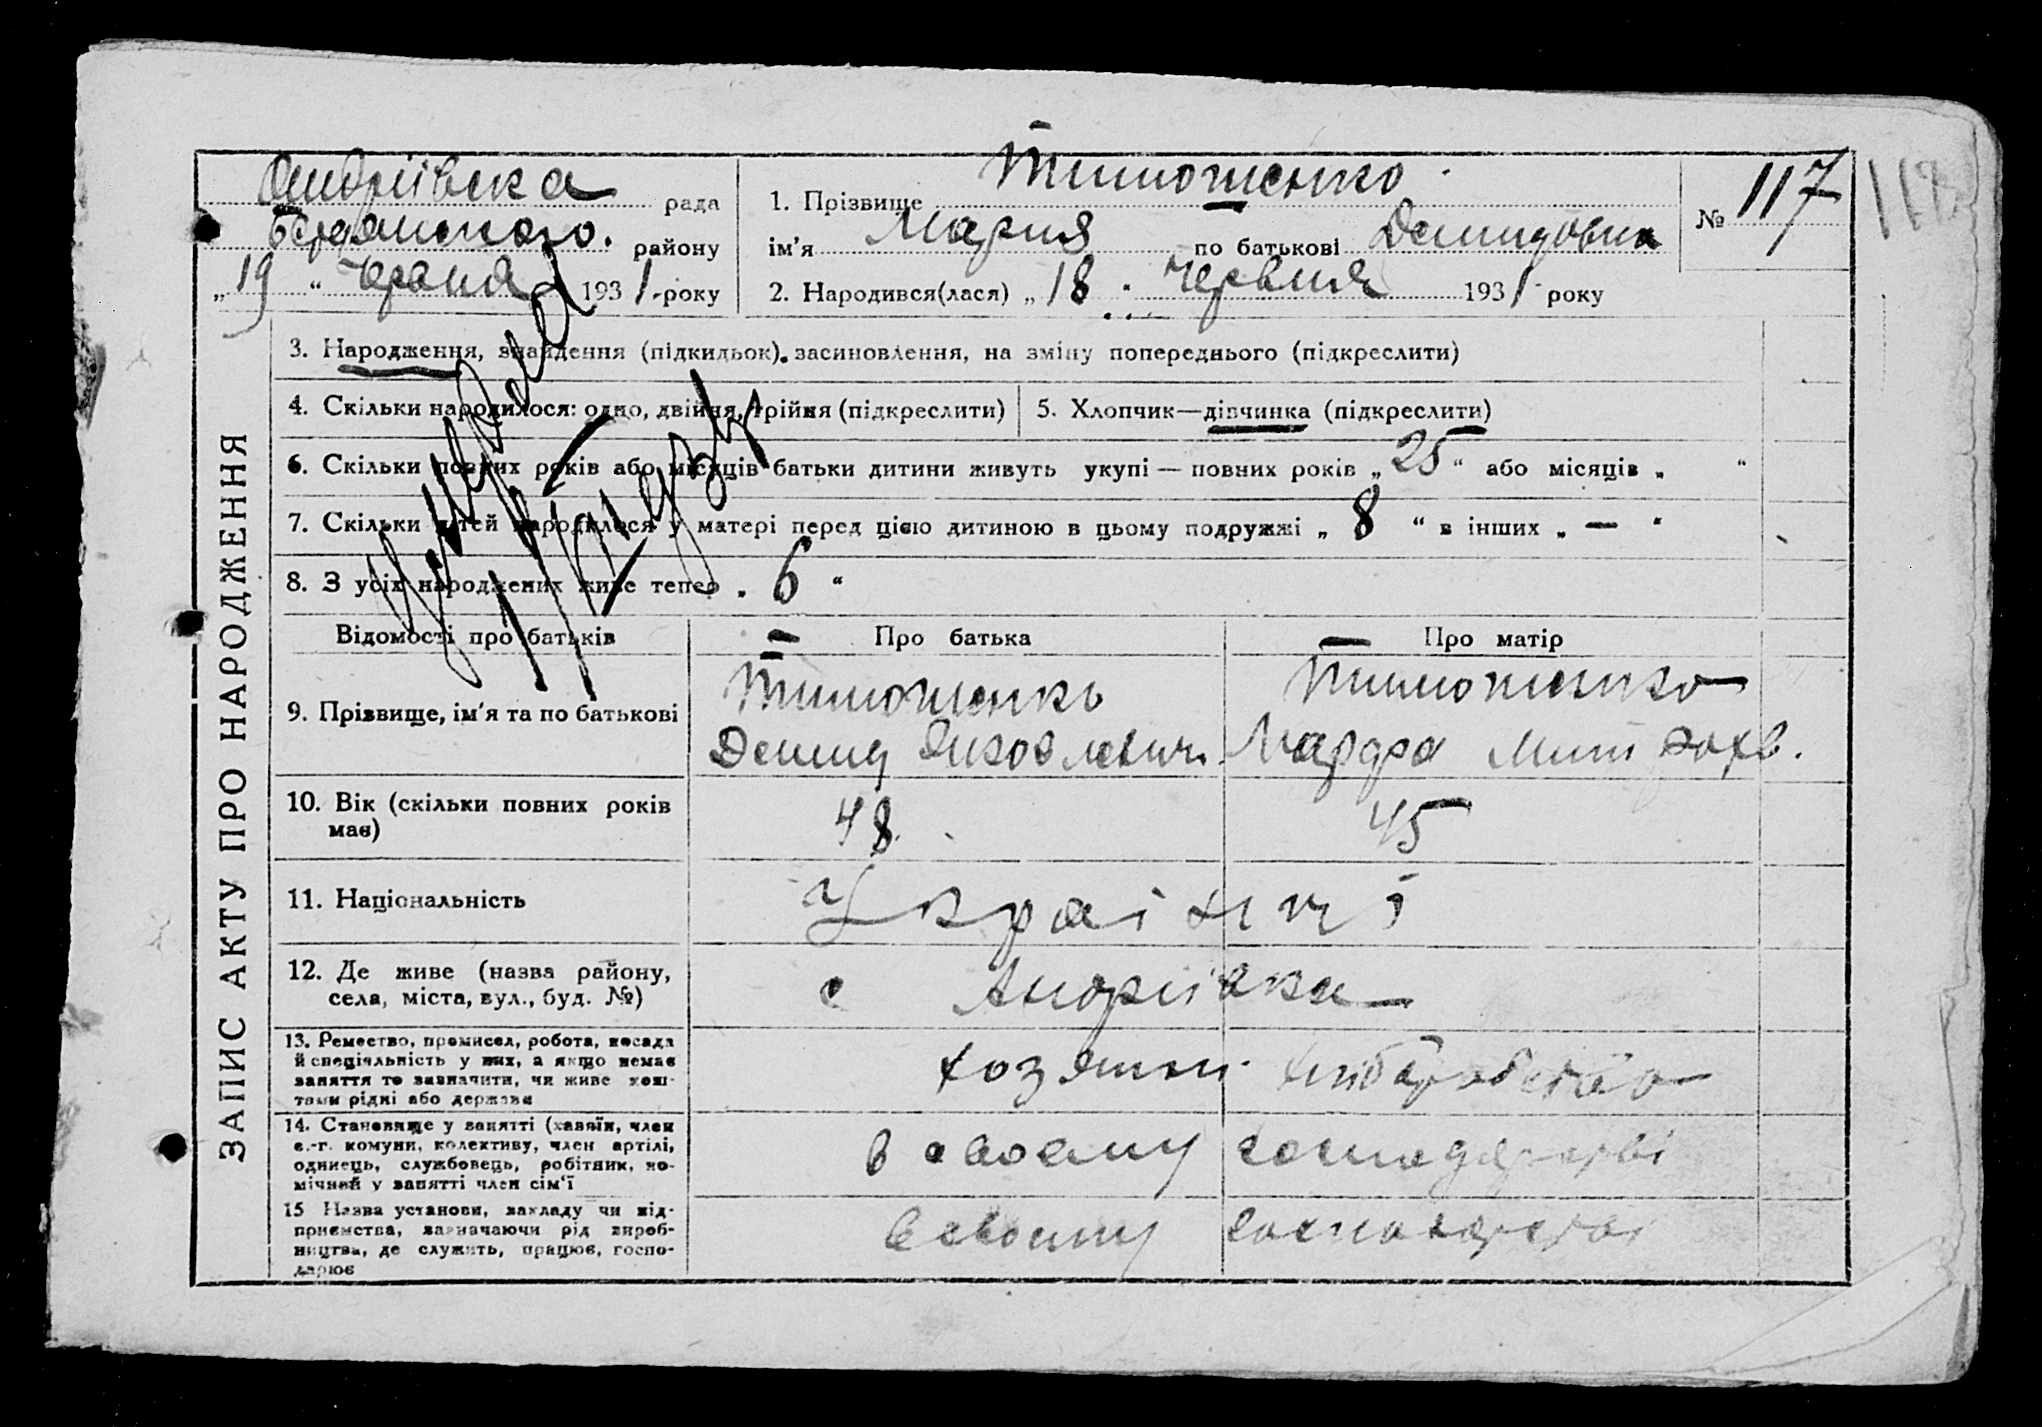 Андріівска рада
Бердянского. району
„19“ Червня 1931 року
1. Прізвище Тимошенко
ім'я Мария по батькові Демидовна
2. Народився(лася) „18 червня 1931 року
№ 117
118
ЗАПИС АКТУ ПРО НАРОДЖЕННЯ
3. Народження, знайдення (підкидьок), засиновлення, на зміну попереднього (підкреслити)
4. Скільки народилося: одно, двійня, трійня (підкреслити)
5. Хлопчик—дівчинка (підкреслити)
6. Скільки повних років або місяців батьки дитини живуть укупі — повних років „25“ або місяців „ “
7. Скільки дітей народилося у матері перед цією дитиною в цьому подружжі „8“ в інших „—“
8. З усіх народжених живе тепер „6“
Відомості про батьків
Про батька
Про матір
9. Прізвище, ім'я та по батькові
Тимошенко
Демид Яковлевич
Тимошенко
Марфа
10. Вік (скільки повних років
має)
48
45
11. Національність
Українці
12. Де живе (назва району,
села, міста, вул., буд. №)
с Андріівка
13. Ремество, промисел, робота, посада
й спеціяльність у них, а якщо немає
заняття то зазначити, чи живе кош-
тами рідні або держави
хозяин хліборобство
14. Становище у занятті (хазяїн, член
с.-г. комуни, колективу, член артілі,
одинець, службовець, робітник, по-
мічний у занятті член сім'ї
в своему господарстві
15 Назва установи, закладу чи під-
приємства, зазначаючи рід вироб-
ництва, де служить, працює, госпо-
дарює
в своему господарстві